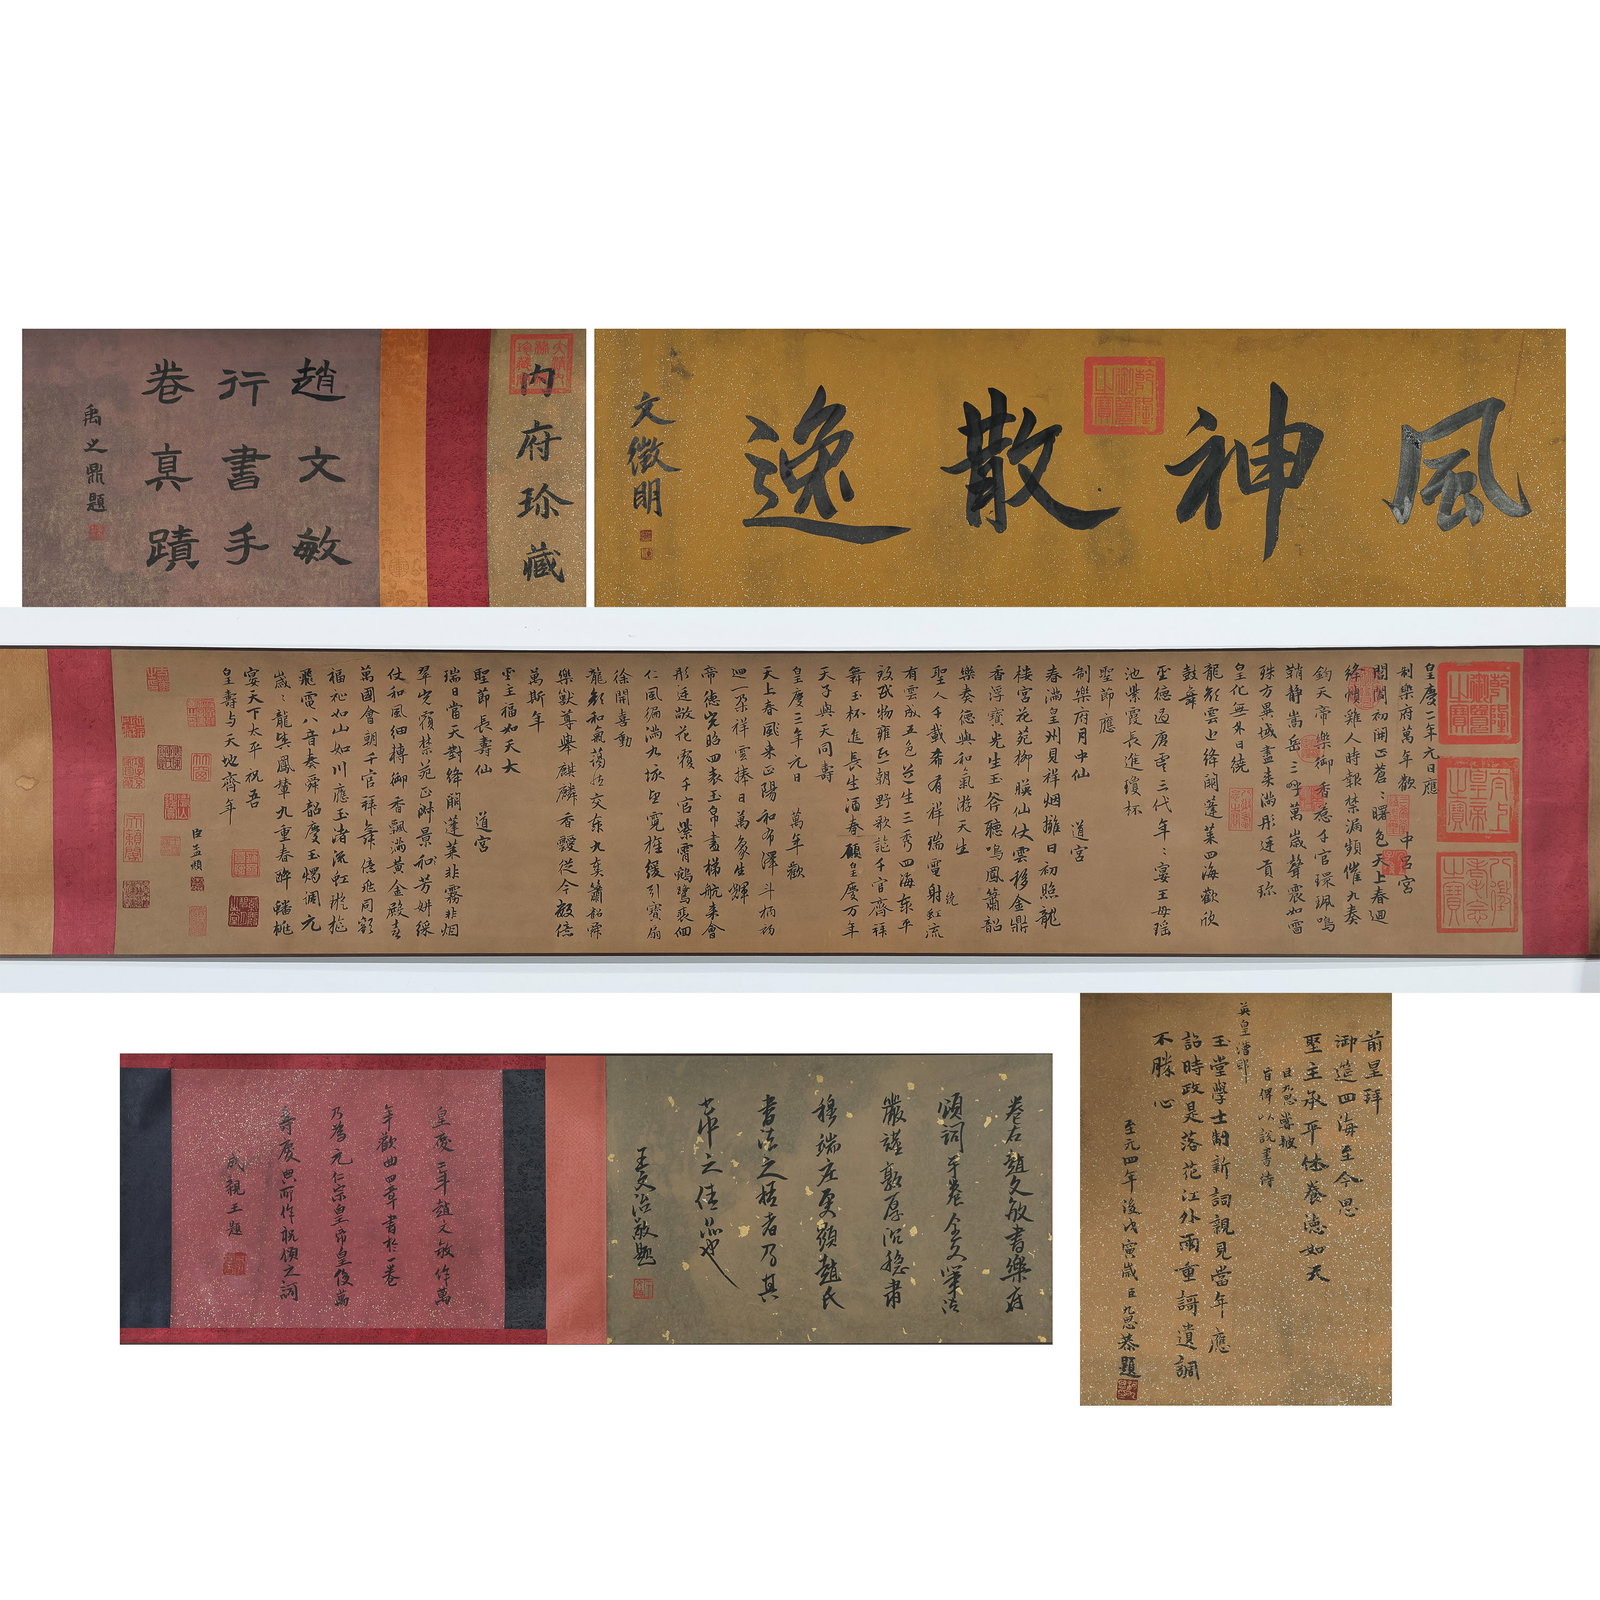 內府珍藏
趙文敏
行書手
卷真蹟
禹之鼎題
風神散逸
文徵明
皇慶二年元日應
制樂府萬年歡 中呂宮
閶闔初開正蒼〻曙色天上春迴
絳幘雞人時報禁漏頻催九奏
鈞天帝樂御香惹千官環珮鳴
鞘靜嵩岳三呼萬歲聲震如雷
殊方異域盡來滿彤廷貢珎
皇化無外日繞
龍顏雲上絳闕蓬萊四海歡欣
鼓舞
聖德過唐虞三代年〻宴王母瑤
池紫霞長進瓊杯
聖節應
制樂府月中仙 道宮
春滿皇州見祥烟擁日初照龍
樓宮花苑柳暎仙仗雲移金鼎
香浮寶光生玉斧聽鳴鳳簫韶
樂奏德與和氣游天生
聖人千載希有祥瑞電繞虹流
有雲成五色芝生三秀四海泰平
致民物雍熙朝野歌謠千官齊拜
舞玉杯進長生酒春願皇慶万年
天子與天同壽
皇慶三年元日 萬年歡
天上春風來正陽和布澤斗柄初
迴一朵祥雲捧日萬象生輝
帝德光昭四表玉帛盡梯航來會
彤廷敞花覆千官紫霄鵷鷺裴徊
仁風徧滿九垓望霓旌緩引寶扇
徐開喜動
龍顏和氣藹交泰九奏簫韶舜
樂獸尊舉麒麟香靉從今數億
萬斯年
聖主福如天大
聖節長壽仙 道宮
瑞日當天對絳闕蓬萊非霧非烟
翠光覆禁苑正淑景和芳妍綵
仗和風細轉御香飄滿黃金殿喜
萬國會朝千官拜舞億兆同歡
福祉如山如川應玉渚流虹璇樞
飛電八音奏舜韶慶玉燭調元
歲〻龍輿鳳輦九重春醉蟠桃
宴天下太平祝吾
皇壽与天地齊年
臣孟頫
前星拜
御造四海至今思
聖主承平体養德如天
臣九思嘗被
旨俾以說書侍
英皇潛邸
玉堂學士獻新詞親見當年應
詔時政是落花江外雨重謌遺調
不勝心
至元四年後戊寅歲臣九思恭題
卷右趙文敏書樂府
頌詞手卷全文筆法
嚴謹敦厚沉穩肅
穆端庄更顯趙氏
書法之楷者乃其
書中之佳品也
王文治敬題
皇慶二年趙文敏作萬
年歡曲四章書於一卷
乃為元仁宗皇帝皇後萬
壽慶典所作祝頌之詞
成親王題